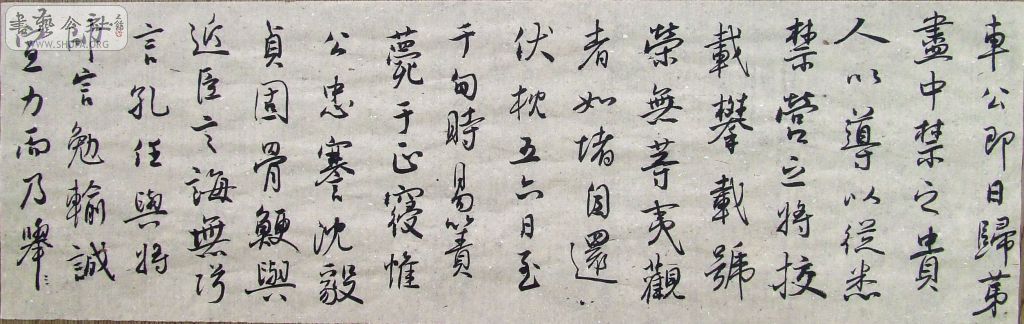 車公即日歸第
盡中禁之貴
人以導以從悉
禁營之將校
載攀載號
榮無等夷觀
者如堵自還
伏枕五六日至
于旬時易簀
薨于正寢惟
公忠謇沈毅
貞固骨鯁與
近臣言誨無
言孔任與將
言勉輸誠
力而乃舉
WWW.SHUFA.ORG